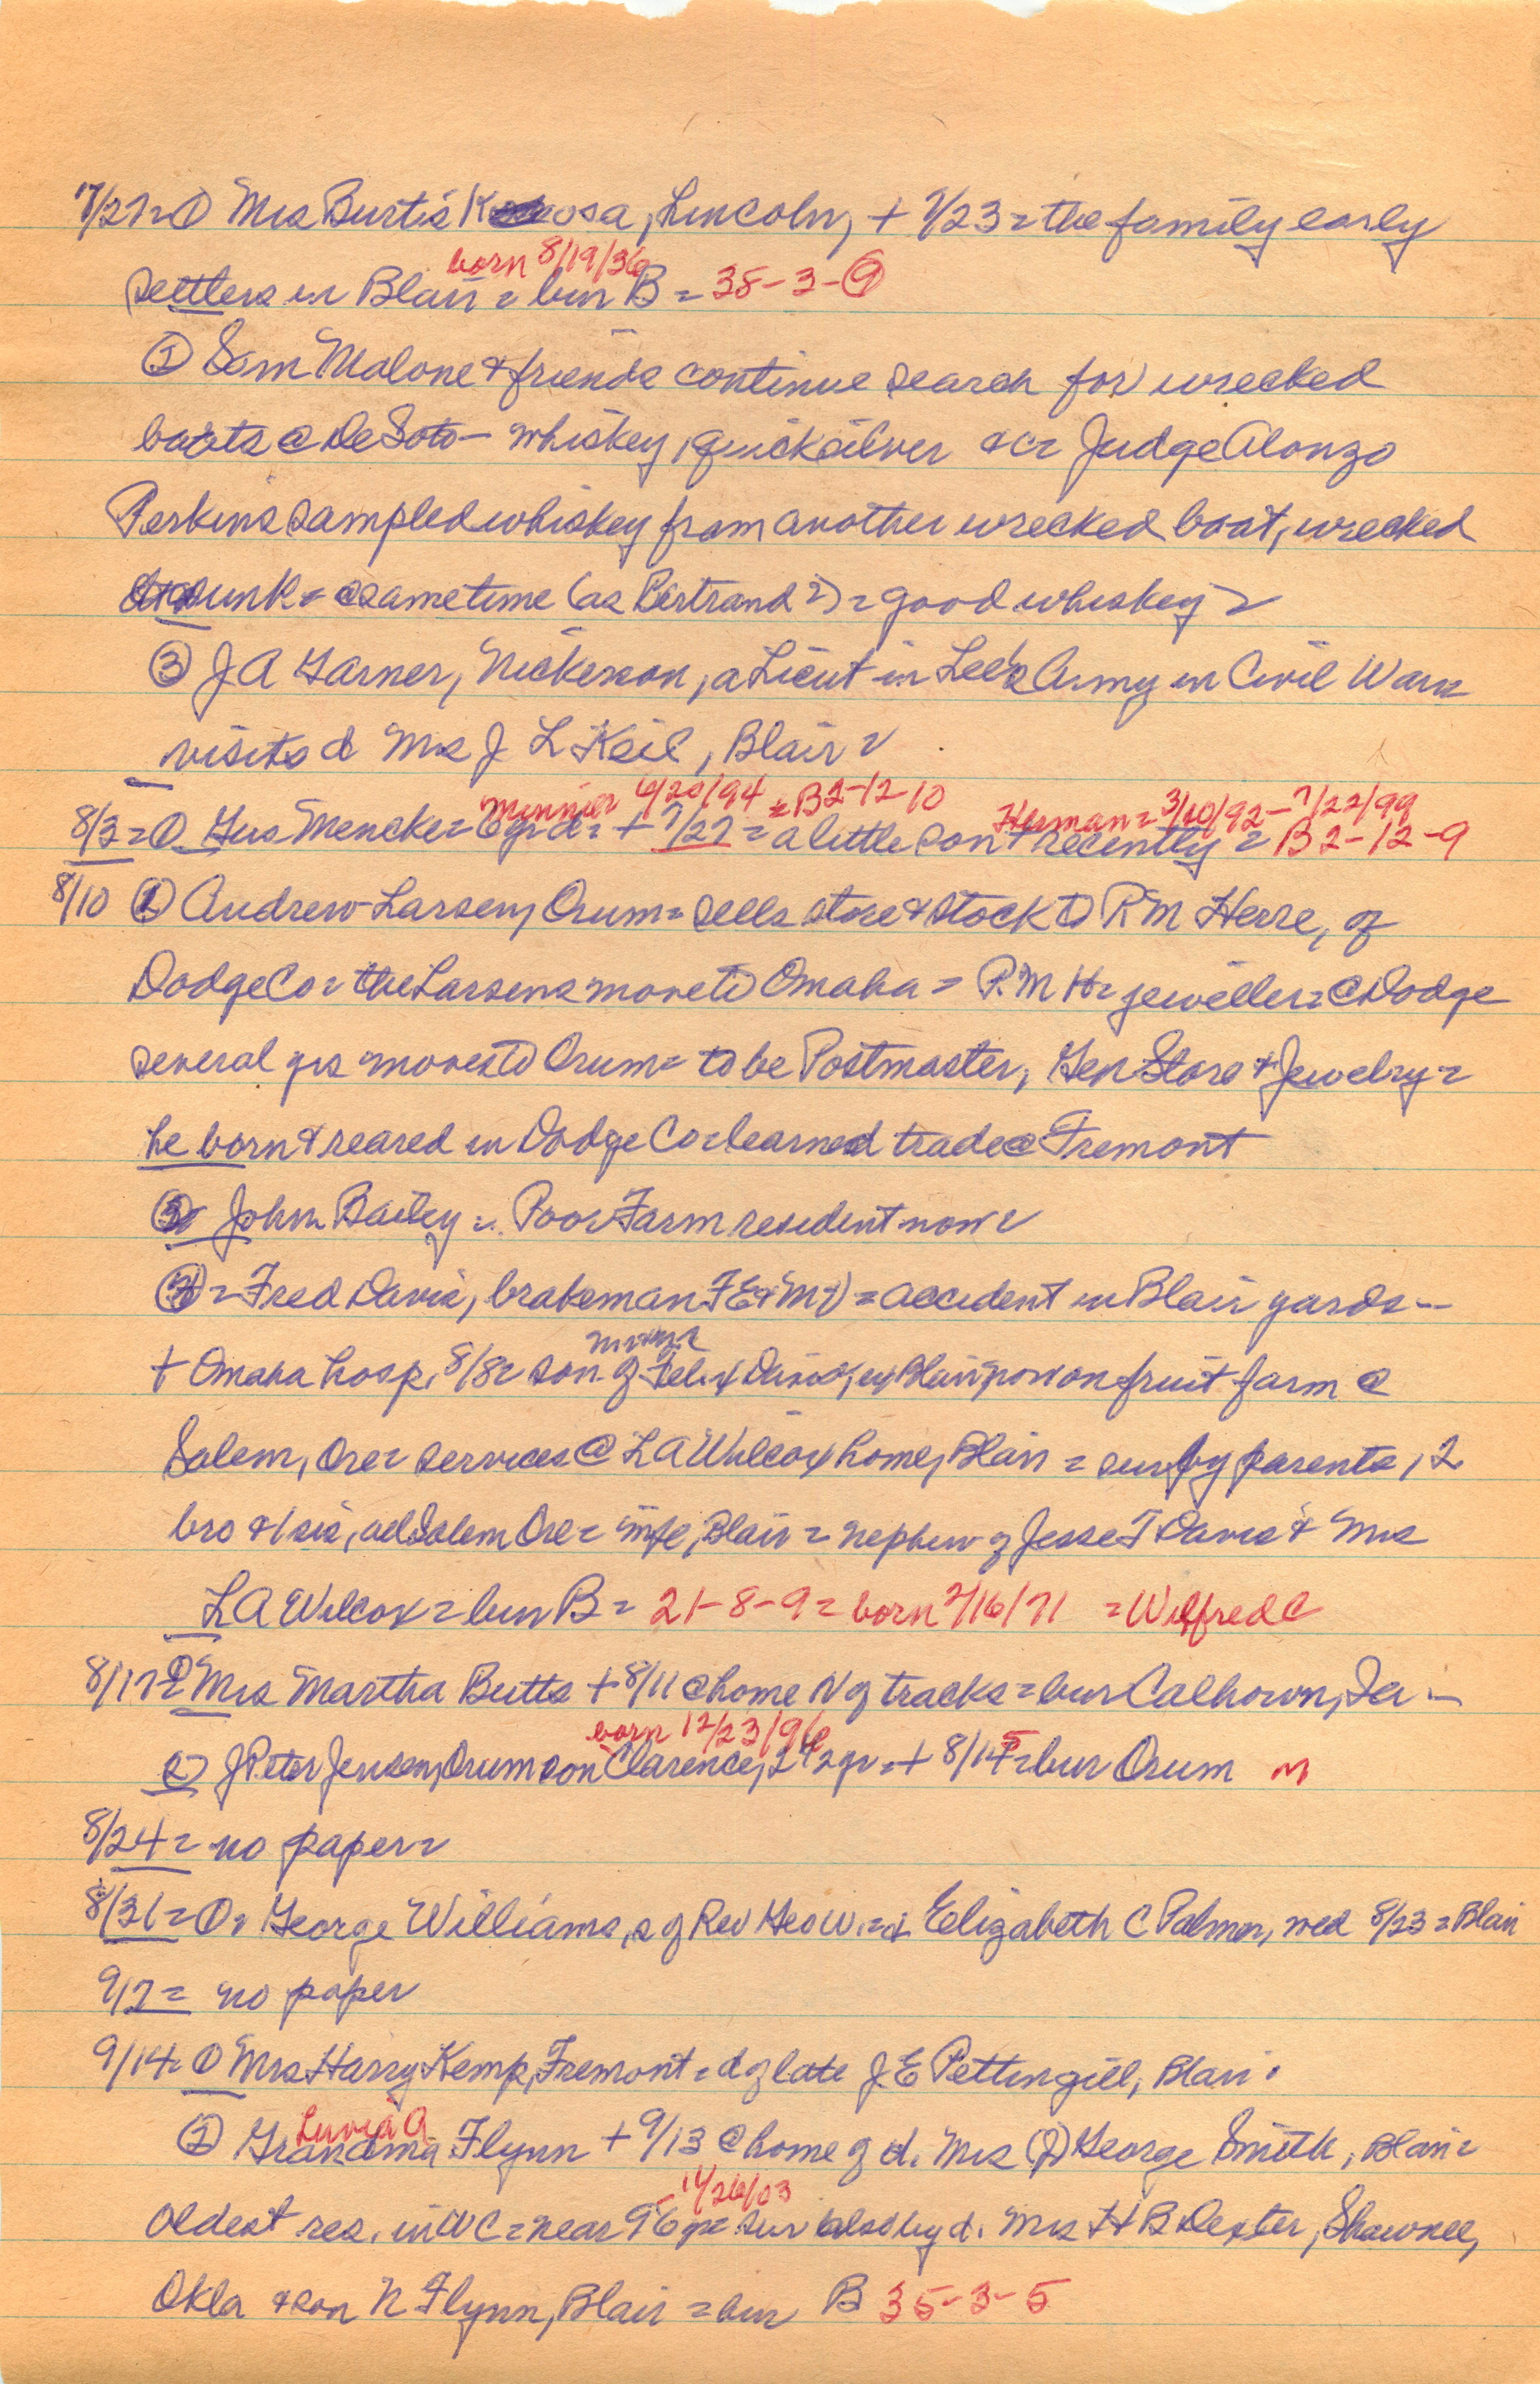 7/27=① Mrs Burtis K osa, Lincoln, + 7/23=the family early
born 8/19/36
settlers in Blair = bur B = 35-3-⑨
② Sam Malone & friends continue search for wrecked
boats @ DeSoto - whiskey, quicksilver &c= Judge Alonzo
Perkins sampled whiskey from another wrecked boat, wrecked
& sunk = @ same time (as Bertrand?) = good whiskey=
③ J A Garner, Nickerson, a Lieut in Lee's Army in Civil War=
visits d Mrs J L Keil, Blair=
Minnie 6/20/94 = B2-12-10 Herman=3/10/92-7/22/99
8/3=① Gus Mencke= 6 yr d= + 7/27 = a little son + recently = B 2-12-9
8/10 ① Andrew Larsen, Orum= sells store & stock to R M Herre, of
Dodge Co= the Larsens move to Omaha = R M H= jeweller= @ Dodge
several yrs moves to Orum= to be Postmaster, Gen Store & Jewelry=
he born & reared in Dodge Co= learned trade @ Fremont
John Bailey = Poor Farm resident now=
= Fred Davis, brakeman F E & M V = accident in Blair yards--
+ Omaha hosp, 8/8= son of Felix Davis, ex Blair now on fruit farm @
Salem, Ore= services @ L A Wilcox home, Blair = sur by parents, 2
bro & 1 sis, all Salem Ore= wife, Blair = nephew of Jesse T Davis & Mrs
L A Wilcox = bur B = 21-8-9 = born 2/16/71 =Wilfred C
8/17=① Mrs Martha Butts + 8/11 @ home N of tracks = bur Calhoun, Ia --
born 12/23/96
② J Peter Jensen, Orum son Clarence, 2½ yr = + 8/15 = bur Orum m
8/24= no paper=
8/31=①= George Williams, s of Rev Geo W. = & Elizabeth C Palmer, wed 8/23 = Blair
9/7= no paper
9/14= ① Mrs Harry Kemp, Fremont = d of late J E Pettingill, Blair.
Luvia A
② Grandma Flynn + 9/13 @ home of d. Mrs (J) George Smith, Blair=
/26/03
oldest res. in W C = near 96 yr= sur also by d. Mrs H B Dexter, Shawnee,
Okla & son N Flynn, Blair = bur B 35-3-5